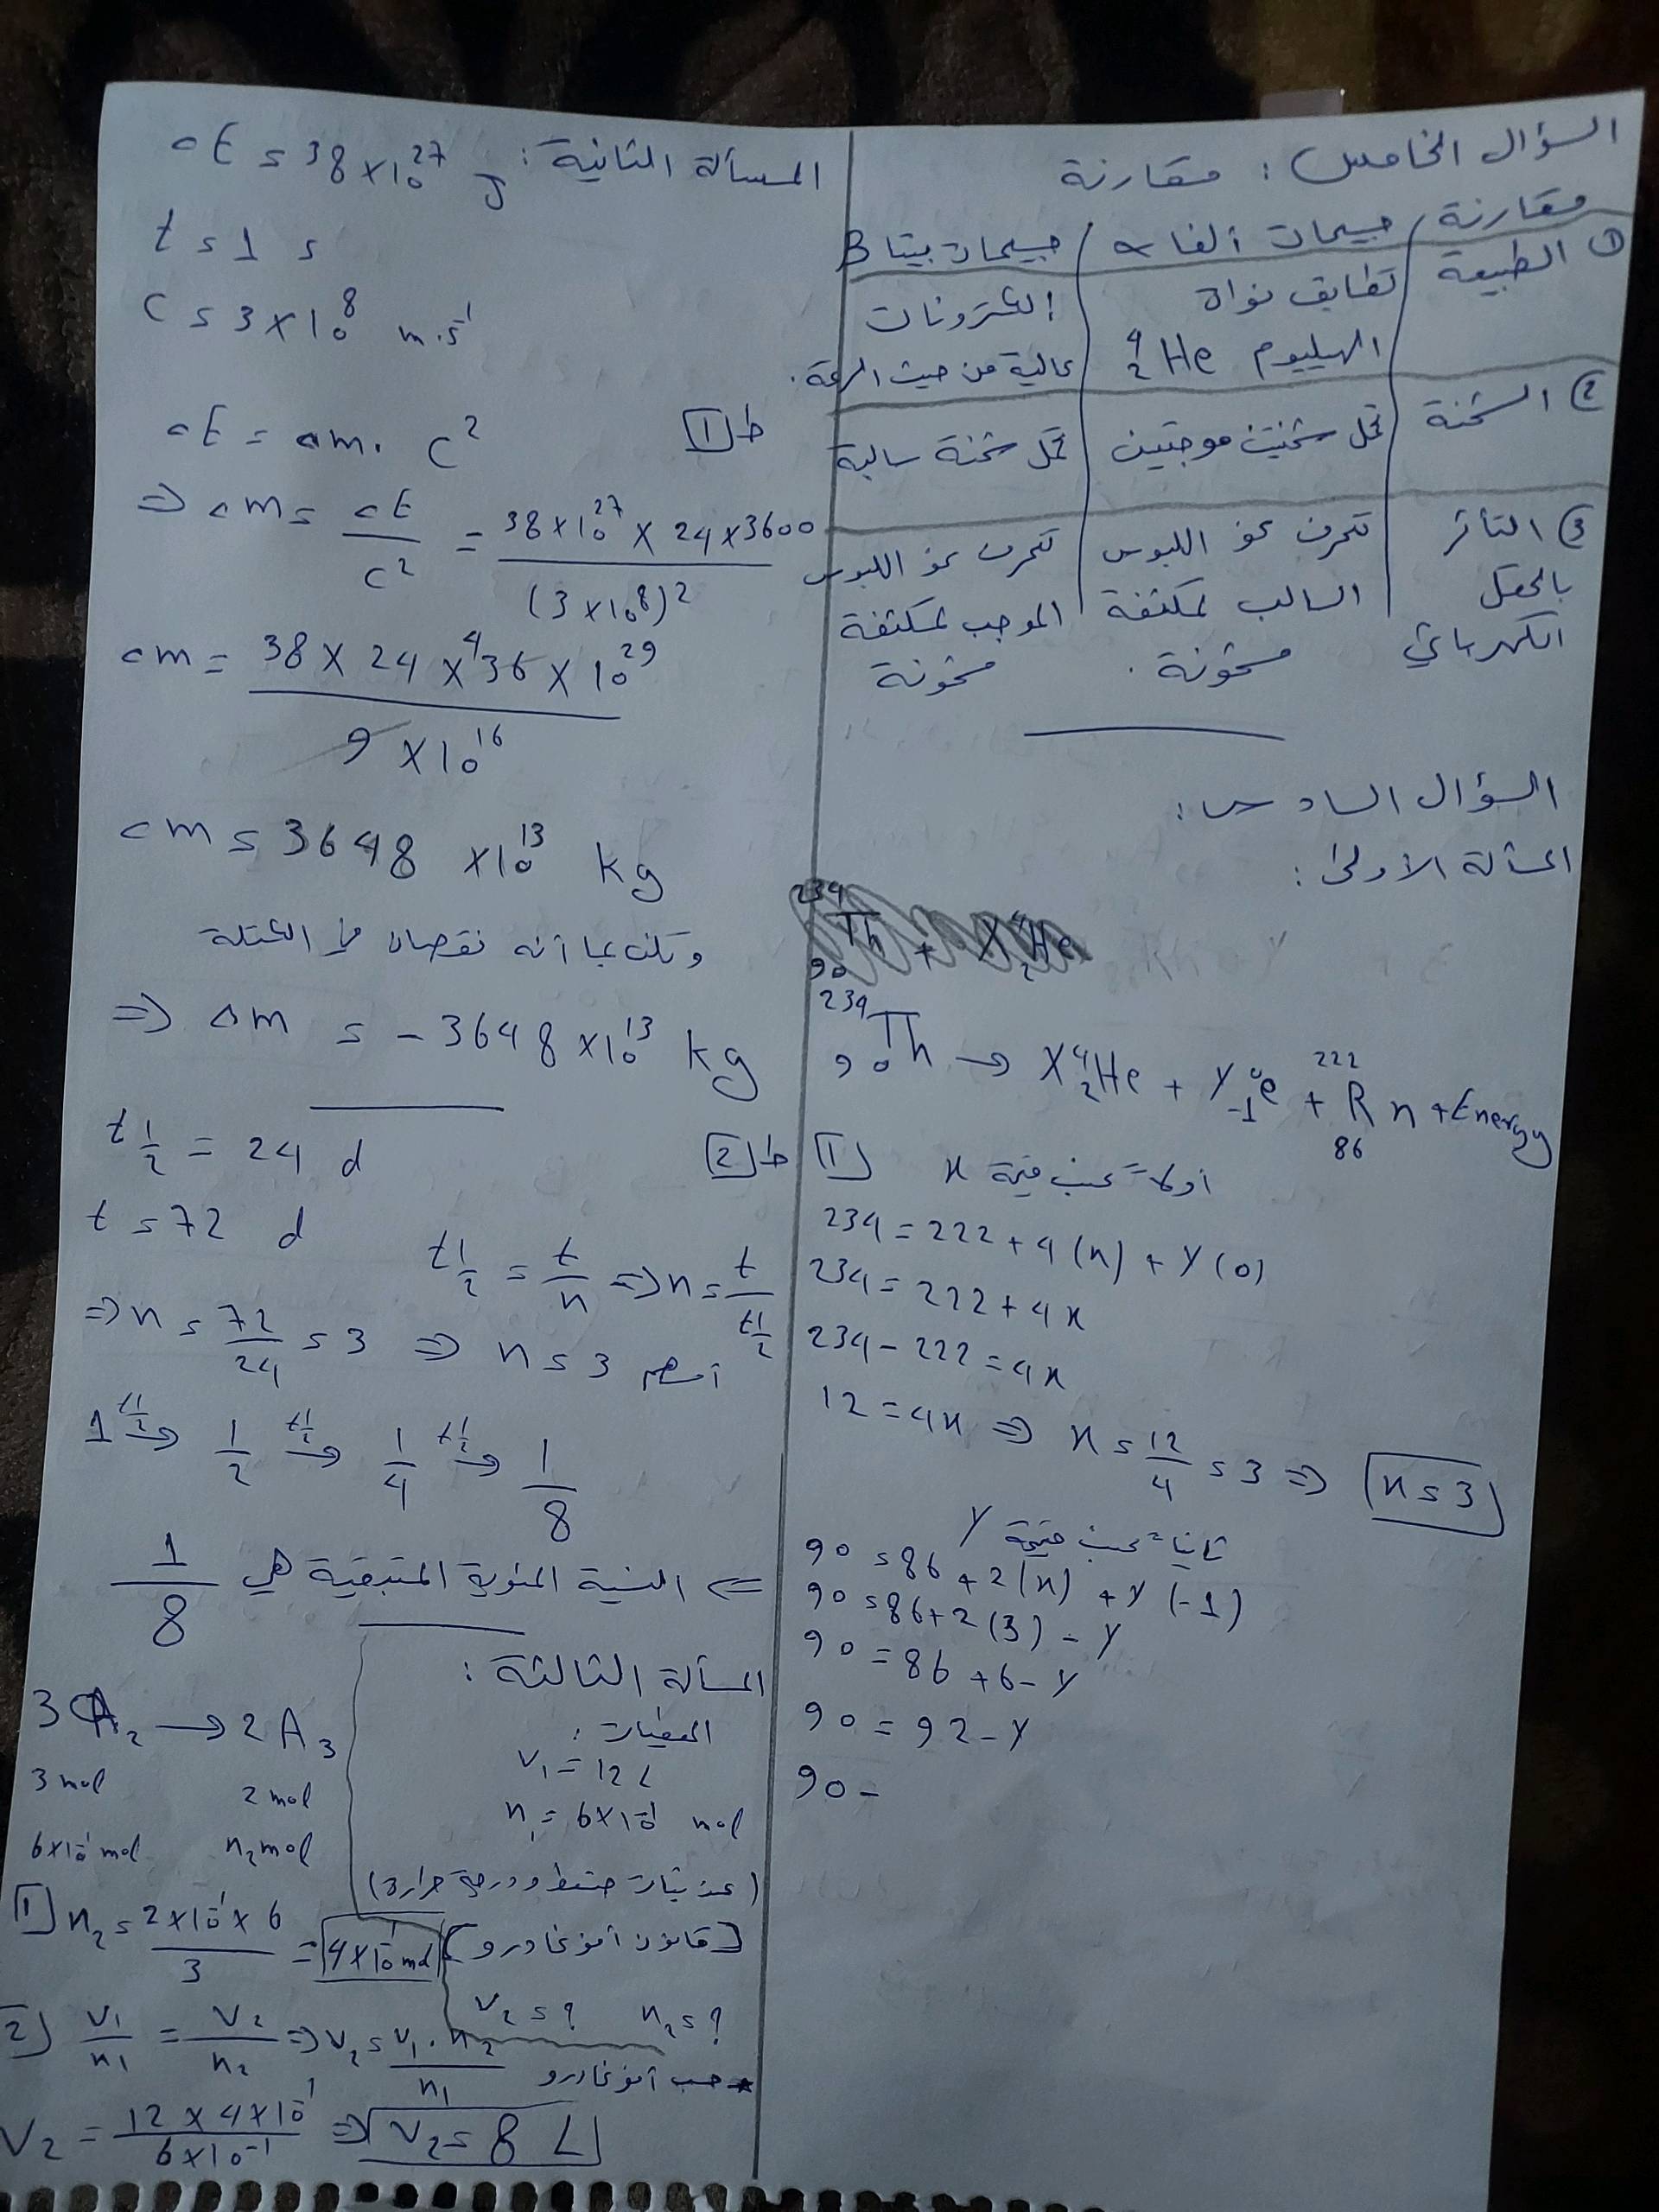 السؤال الخامس: مقارنة
مقارنة / جسيمات ألفا α / جسيمات بيتا B
① الطبيعة
تطابق نواة
الهيليوم ⁴₂He
إلكترونات
عالية من حيث السرعة.
② الشحنة
تحمل شحنتين موجبتين
تحمل شحنة سالبة
③ التأثر
بالحقل
الكهربائي
تنحرف نحو اللبوس
السالب لمكثفة
مشحونة.
تنحرف نحو اللبوس
الموجب لمكثفة
مشحونة
السؤال السادس:
المسألة الأولى:
²³⁴₉₀Th + X ⁴₂He
²³⁴₉₀Th → X ⁴₂He + Y ⁰₋₁e + ²²²₈₆Rn + Energy
[1] أولاً = نحسب قيمة x
234 = 222 + 4(x) + Y(0)
234 = 222 + 4x
234 - 222 = 4x
12 = 4x ⇒ x = 12/4 = 3 ⇒ x = 3
ثانياً = نحسب قيمة Y
90 = 86 + 2(x) + Y(-1)
90 = 86 + 2(3) - Y
90 = 86 + 6 - Y
90 = 92 - Y
90 -
المسألة الثانية: ΔE = 38 × 10²⁷ J
t = 1 s
C = 3 × 10⁸ m.s⁻¹
ط [1] ΔE = Δm. C²
⇒ Δm = ΔE/C² = 38 × 10²⁷ × 24 × 3600 / (3 × 10⁸)²
Δm = 38 × 24 × 36 ⁴ × 10²⁹ / 9 × 10¹⁶
Δm = 3648 × 10¹³ kg
ولكن بما أنه نقصان في الكتلة
⇒ Δm = - 3648 × 10¹³ kg
ط [2] t½ = 24 d
t = 72 d
t½ = t/n ⇒ n = t/t½
⇒ n = 72/24 = 3 ⇒ n = 3
1 →(t½) 1/2 →(t½) 1/4 →(t½) 1/8
⇐ النسبة المئوية المتبقية هي 1/8
المسألة الثالثة:
المعطيات:
V₁ = 12 L
n₁ = 6 × 10⁻¹ mol
(عند ثبات ضغط ودرجة حرارة)
[قانون أفوغادرو]
V₂ = ? n₂ = ?
3A₂ → 2A₃
3 mol 2 mol
6 × 10⁻¹ mol n₂ mol
[1] n₂ = 2 × 10⁻¹ × 6 / 3 = 4 × 10⁻¹ mol
* حسب أفوغادرو
[2] V₁/n₁ = V₂/n₂ ⇒ V₂ = V₁.n₂/n₁
V₂ = 12 × 4 × 10⁻¹ / 6 × 10⁻¹ ⇒ V₂ = 8 L